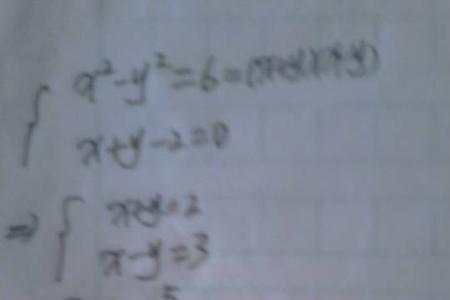 x²-y²=6=(x+y)(x-y)
x+y-2=0
⇒ x+y=2
x-y=3
5